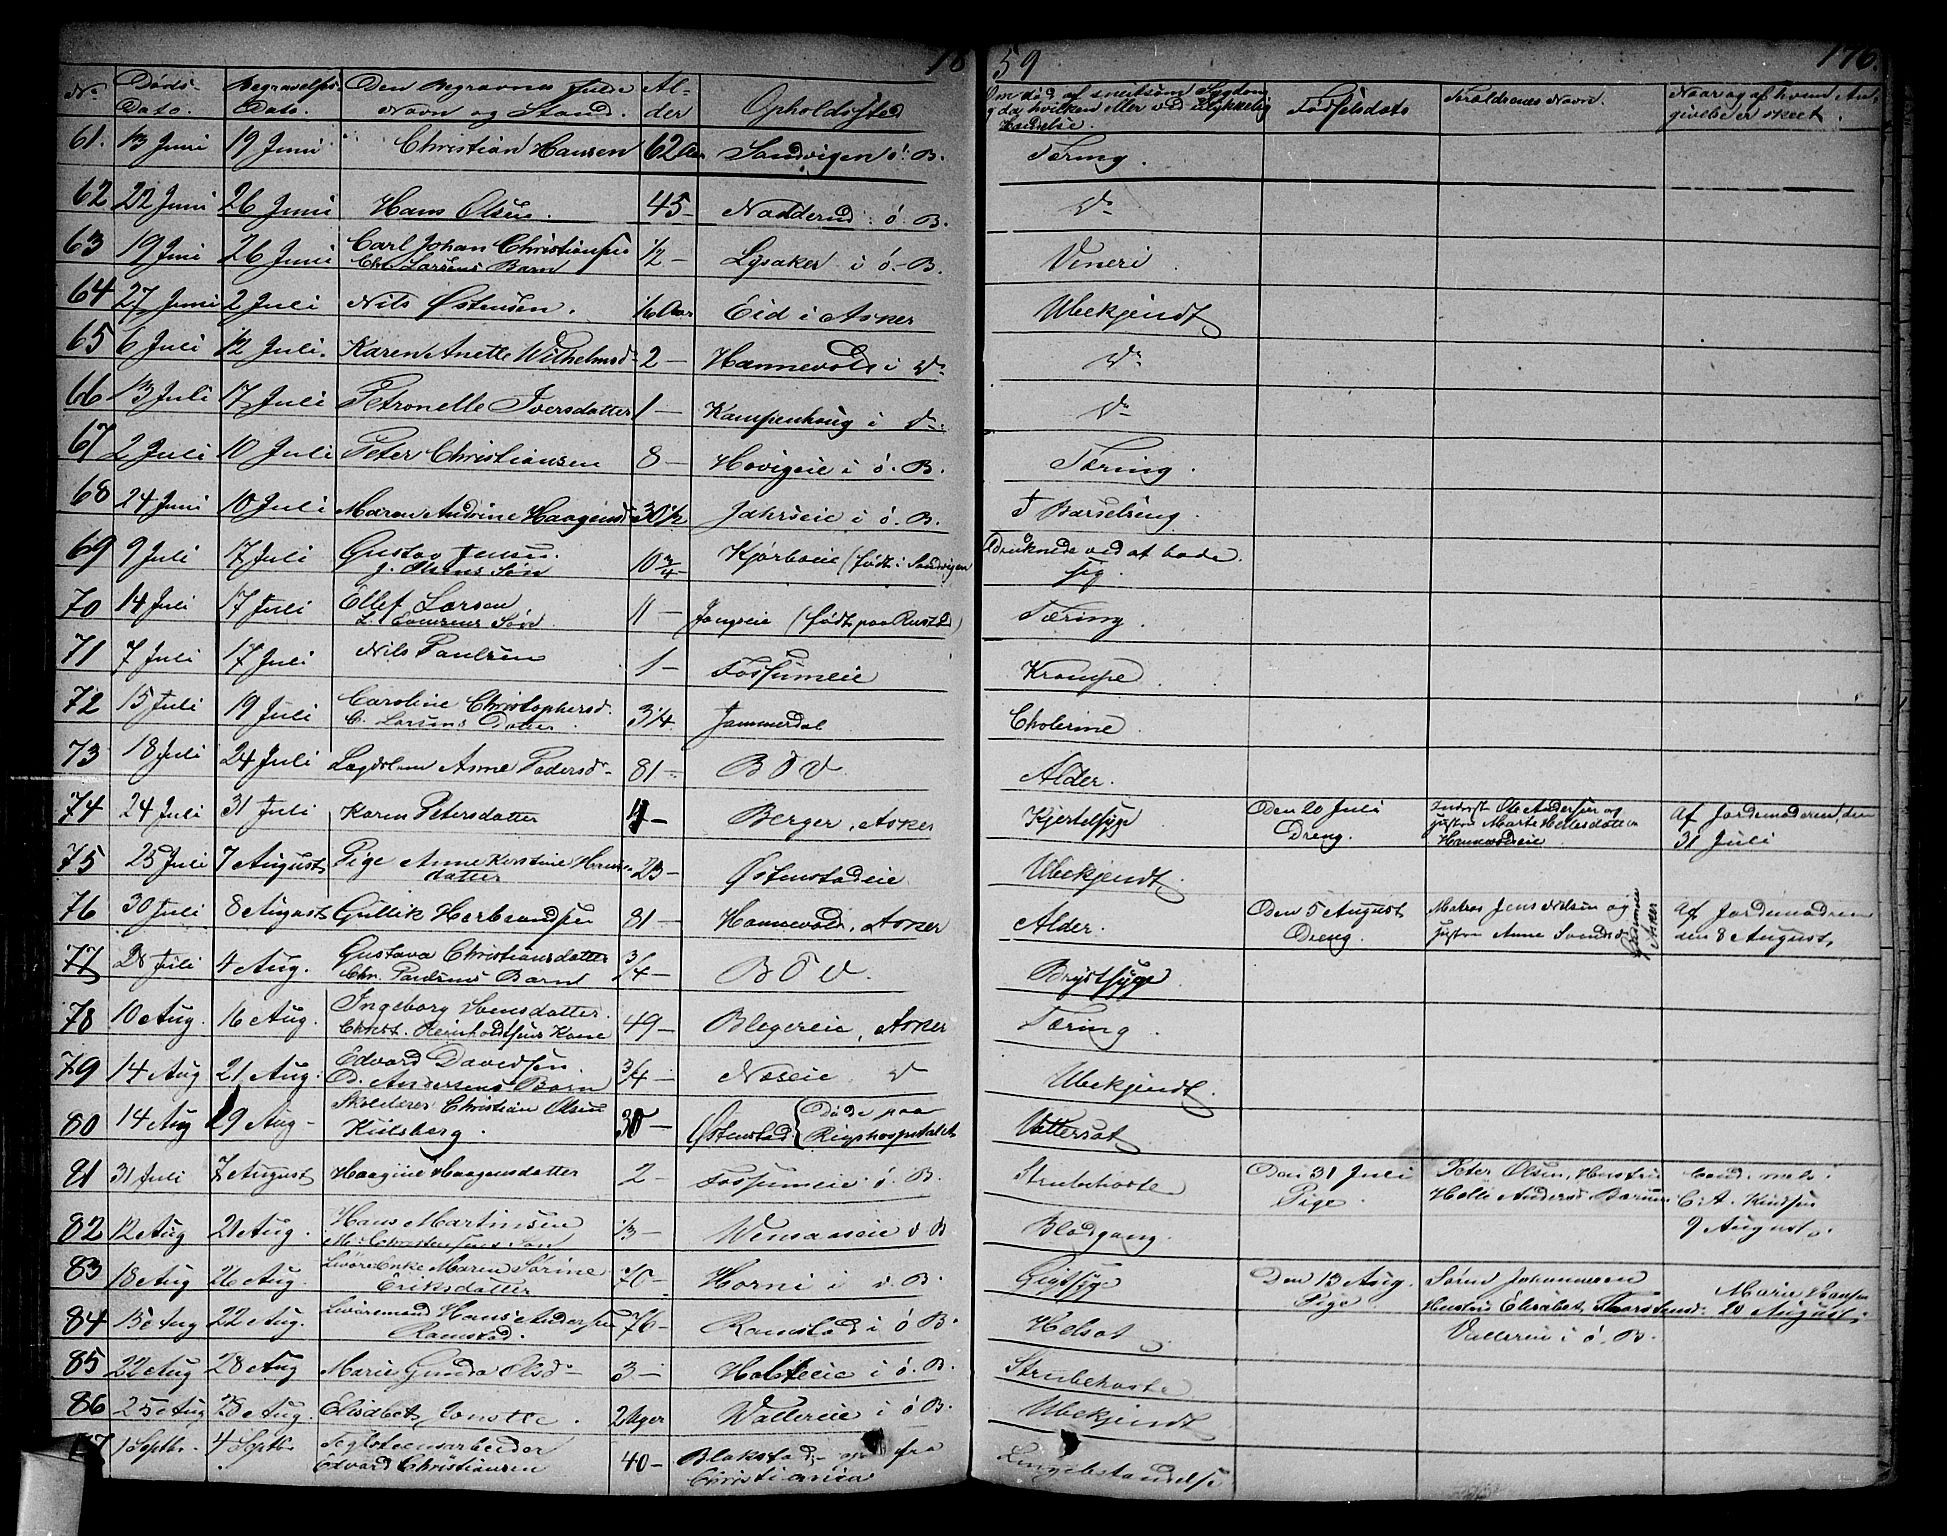 1859
176.
No Døds- Dato. Begravelses Dato. Den Begravnes fulde Navn og Stand. Al- der Opholdssted Om død af smitsom Sygdom og da hvilken eller ved ulykkelig Hændelse. Fødselsdato Forældrenes Navn. Naar og af hvem An- givelse er skeet.
61. 13 Juni 19 Juni Christian Hansen 62 Aar Sandvigen ø. B. Tæring.
62 22 Juni 26 Juni Hans Olsen. 45 – Nadderud ø. B. Do
63 19 Juni 26 Juni Carl Johan Christiansen
Chr. Larsens Barn 1/2 – Lysaker i ø. B. Veneri
64 27 Juni 2 Juli Nils Østensen. 16 Aar Eid i Asker Ubekjendt
65 6 Juli 12 Juli. Karen Anette Wilhelmsd. 2 – Hannevold i Do Do
66 13 Juli 17 Juli Petronelle Iversdatter 1 – Kampenhoug i Do. Do
67 2 Juli 10 Juli Peter Christiansen 8 – Hovigeie i ø. B. Tæring.
68 24 Juni 10 Juli Maren Andrine Haagensd. 30 1/2 Jahrseie i ø. B. I Barselseng.
69 9 Juli 17 Juli Gustav Jensen
J. Olsens Søn 10 3/4 – Kjørboeie (født i Sandvigen Druknede ved at bade sig.
70 14 Juli 17 Juli Ellef Larsen
L. Søn 11 – Jongseie (født paa Rustd) Tæring.
71 7 Juli 17 Juli Nils Paulsen 1 – Fossumeie Krampe.
72 15 Juli 19 Juli Caroline Christophersd.
C. Larsens Datter 3/4. Jammerdal Cholerine.
73 18 Juli 24 Juli Lægdslem Anne Pedersd. 81 – B Ø V. Alder.
74 24 Juli 31 Juli Karen Petersdatter – Berger, Asker Kjertelsyge Den 20 Juli
Dreng. Ole Andersen og
Hustru Marte Hellesdatter
Hannevoldseie Af Jordemoderen, den
31 Juli
75 25 Juli 7 August Pige Anne Kirstine Hans-
datter 23 – Østenstadeie Ubekjendt.
76 30 Juli 8 August Gullik Herbrandsen 81 – Hannevold, Asker Alder. Den 5 August
Dreng. Matros Jens Nilsen og
Hustru Anne Asker Af Jordemodren
den 8 August.
77 28 Juli 4 Aug. Gustava Christiansdatter
Chr. Paulsens Barn 3/4 – B Ø V. Brystsyge
78 10 Aug. 16 Aug. Ingeborg Hansdatter.
Christ. Reinholdtsens Kone 49 – Blegereie, Asker Tæring.
79 14 Aug 21 Aug. Edvard Davidsen.
D. Andersens Barn 3/4 – Næseie Ubekjendt.
80 14 Aug 29 Aug – Skolelærer Christian Olsen
Kulsberg. 30 – Østenstad { Døde paa
Rigshospitalet Vattersot
81 31 Juli 7 August Haagine Haagensdatter 2 – Fossumeie ø. B. Strubehoste Den 31 Juli
Pige. Peter Olsen, Hustru
Helle Andersd Bærum Cand. med.
C. A. Knudsen
9 August.
82 12 Aug 21 Aug. Hans Martinsen
M. Christensens Søn 13 – Wensaaseie ø B Blodgang.
83 18 Aug 26 Aug. Enke Maren Sørine
Eriksdatter 70 – Horni i ø. B. Gigtsyge Den 13 Aug.
Pige. Søren Johannesen
Hustru Elisabet Thorstensd.
Vallereie i ø. B. Marie Hansen
20 August
84 15 Aug 22 Aug. Hans Andersen
Ramstad. 76 – Ramstad i ø B. Helsot
85 22 Aug 28 Aug Marie Gunda Olsd. 3 – Holteeie i ø. B. Strubehoste
86 25 Aug 28 Aug. Elisabet . 2 Uger Vallereie i ø B. Ubekjendt.
87 1 Septbr. 4 Septbr. Teglsteensarbeider
Edvard Christiansen 40 – Blakstad – fra
Christiania